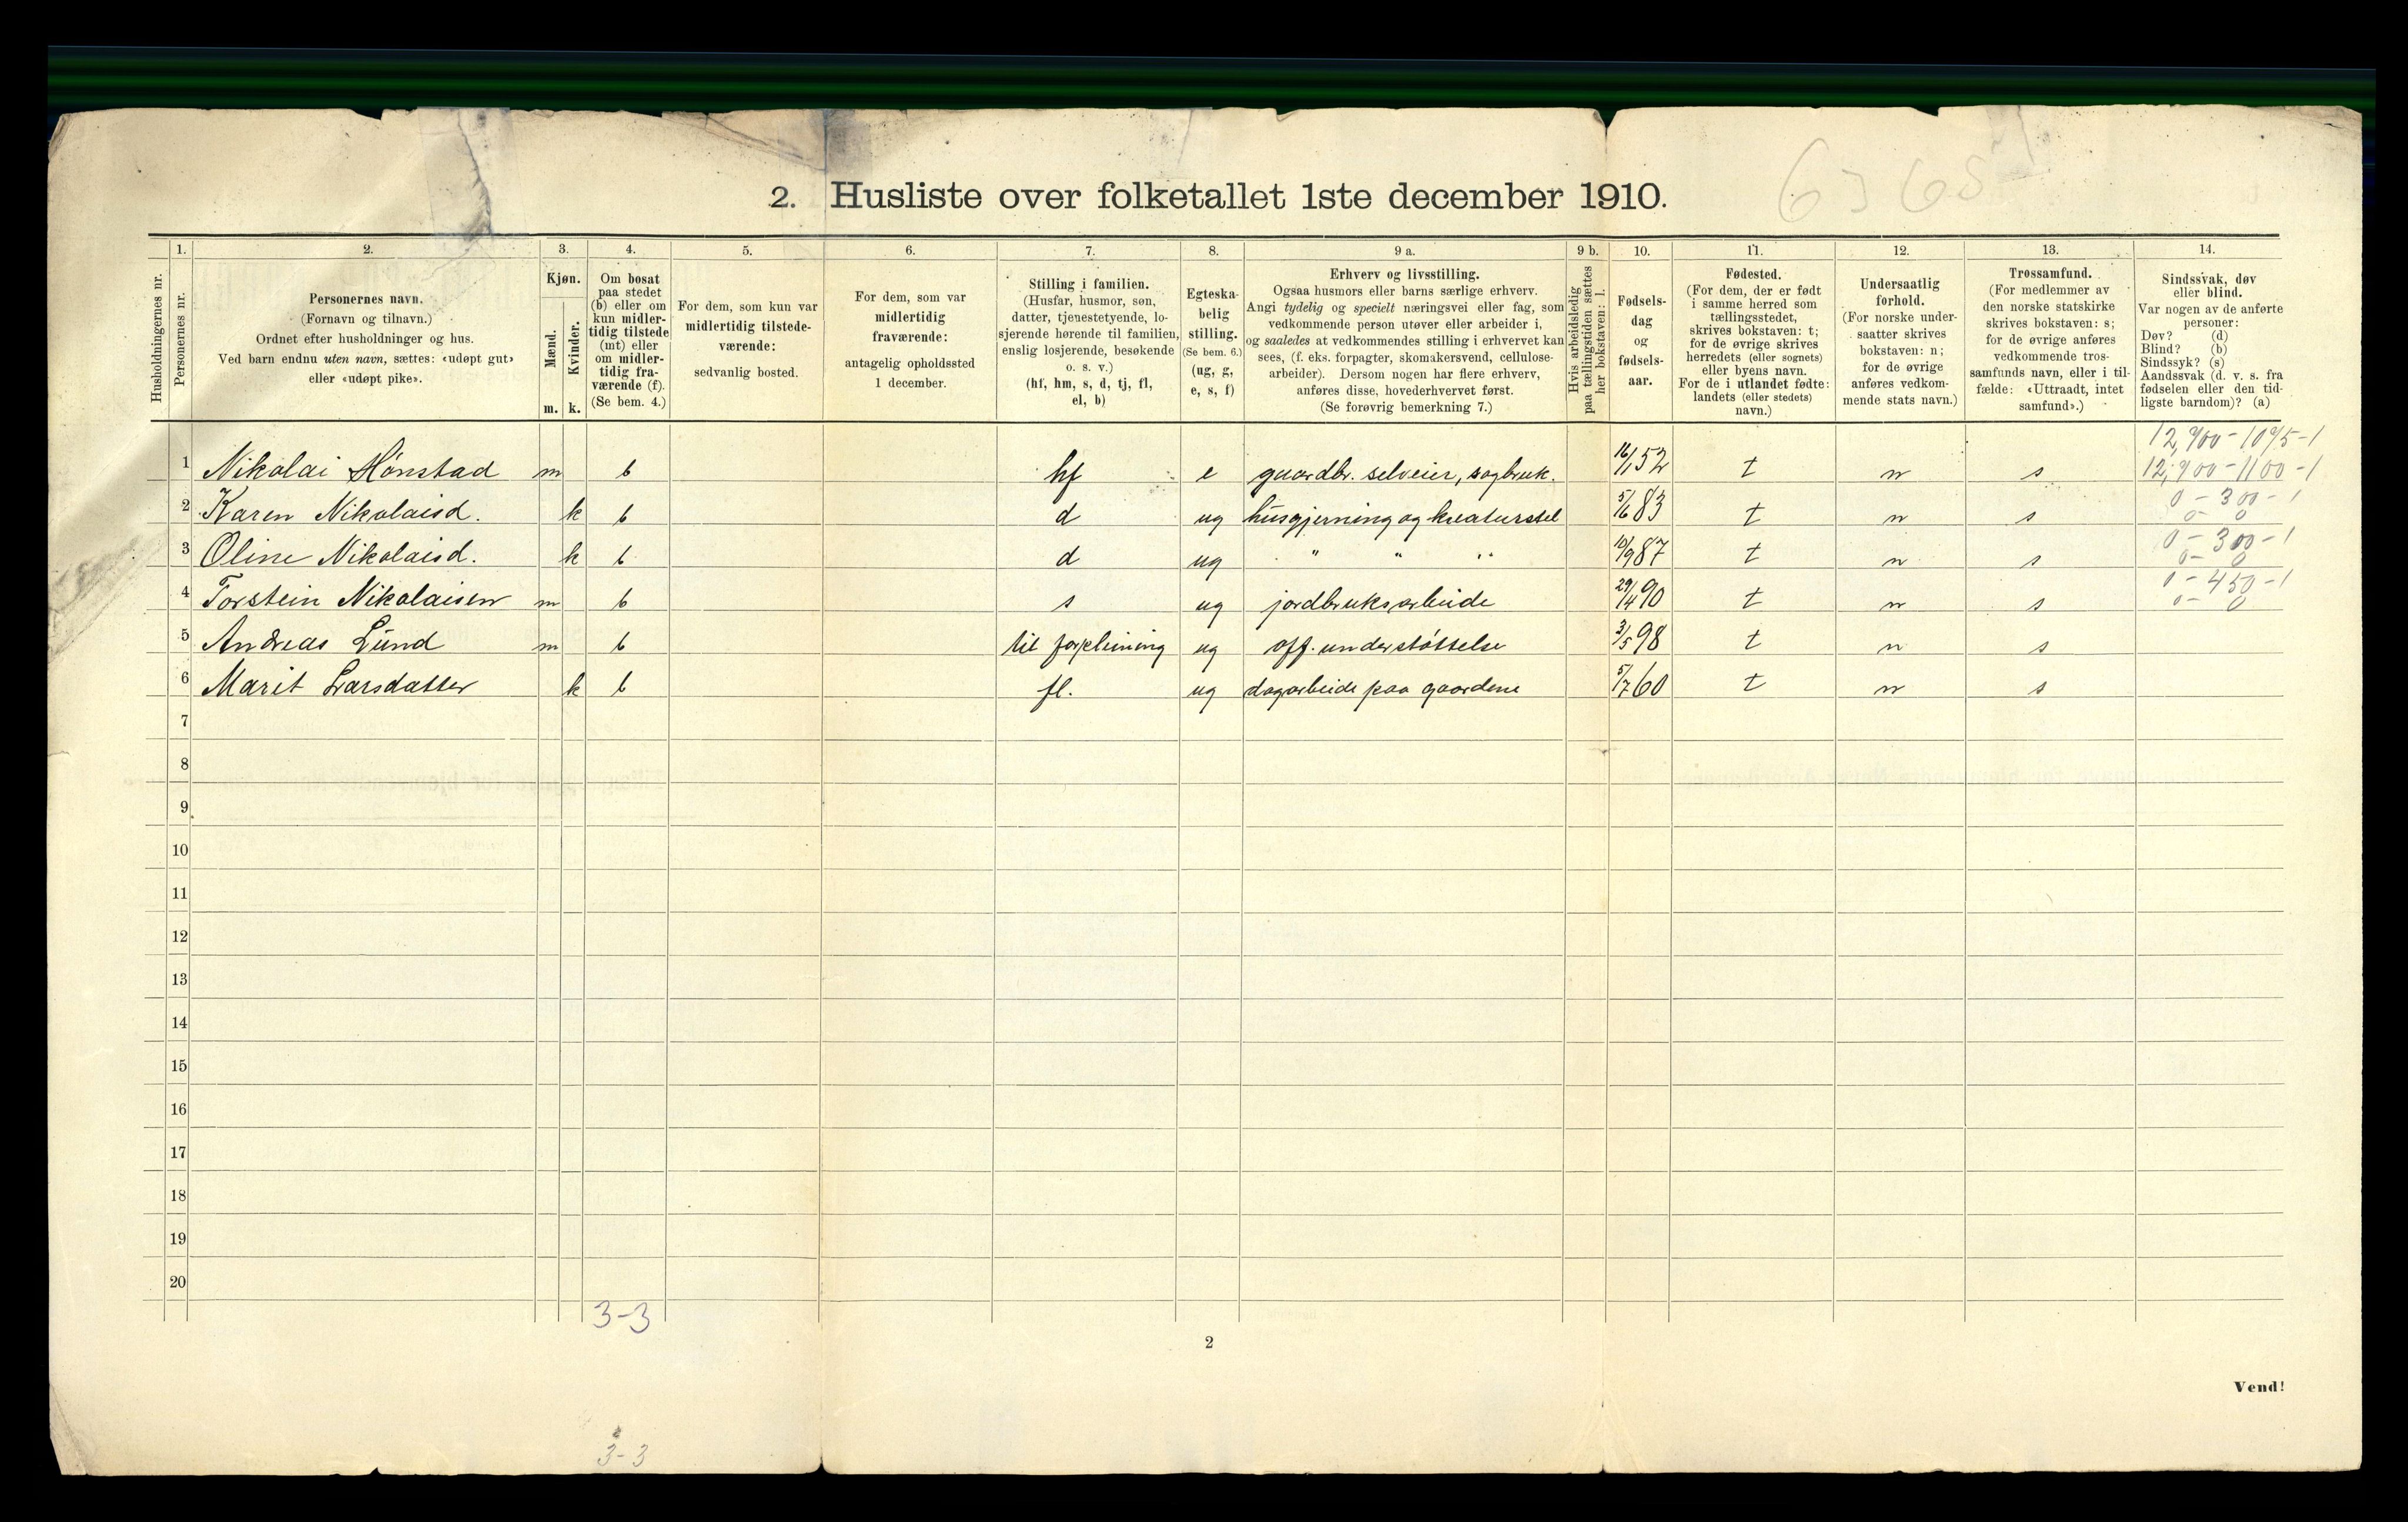 2. Husliste over folketallet 1ste december 1910.
Husholdningernes nr.
1.
Personernes nr.
2.
Personernes navn.
(Fornavn og tilnavn.)
Ordnet efter husholdninger og hus.
Ved barn endnu uten navn, sættes: «udøpt gut»
eller «udøpt pike».
3.
Kjøn.
Mænd.
Kvinder.
m. k.
4.
Om bosat
paa stedet
(b) eller om
kun midler-
tidig tilstede
(mt) eller
om midler-
tidig fra-
værende (f).
(Se bem. 4.)
5.
For dem, som kun var
midlertidig tilstede-
værende:
sedvanlig bosted.
6.
For dem, som var
midlertidig
fraværende:
antagelig opholdssted
1 december.
7.
Stilling i familien.
(Husfar, husmor, søn,
datter, tjenestetyende, lo-
sjerende hørende til familien,
enslig losjerende, besøkende
o. s. v.)
(hf, hm, s, d, tj, fl,
el, b)
8.
Egteska-
belig
stilling.
(Se bem. 6.)
(ug, g,
e, s, f)
9 a.
Erhverv og livsstilling.
Ogsaa husmors eller barns særlige erhverv.
Angi tydelig og specielt næringsvei eller fag, som
vedkommende person utøver eller arbeider i,
og saaledes at vedkommendes stilling i erhvervet kan
sees, (f. eks. forpagter, skomakersvend, cellulose-
arbeider). Dersom nogen har flere erhverv,
anføres disse, hovederhvervet først.
(Se forøvrig bemerkning 7.)
9 b.
Hvis arbeidsledig
paa tællingstiden sættes
her bokstaven: l.
10.
Fødsels-
dag
og
fødsels-
aar.
11.
Fødested.
(For dem, der er født
i samme herred som
tællingsstedet,
skrives bokstaven: t;
for de øvrige skrives
herredets (eller sognets)
eller byens navn.
For de i utlandet fødte:
landets (eller stedets)
navn.)
12.
Undersaatlig
forhold.
(For norske under-
saatter skrives
bokstaven: n;
for de øvrige
anføres vedkom-
mende stats navn.)
13.
Trossamfund.
(For medlemmer av
den norske statskirke
skrives bokstaven: s;
for de øvrige anføres
vedkommende tros-
samfunds navn, eller i til-
fælde: «Uttraadt, intet
samfund».)
14.
Sindssvak, døv
eller blind.
Var nogen av de anførte
personer:
Døv? (d)
Blind? (b)
Sindssyk? (s)
Aandssvak (d. v. s. fra
fødselen eller den tid-
ligste barndom)? (a)
1 Nikolai Hønstad m b hf e gaardbr. selveier, sagbruk. 16/1 52 t n s
2 Karen Nikolaisd. k b d ug husgjerning og kreaturstel 5/6 83 t n s 0 - 300 - 1
0 - 0
3 Oline Nikolaisd. k b d ug " " " 10/9 87 t n s 0 - 300 - 1
0 - 0
4 Torstein Nikolaisen m b s ug jordbruksarbeide 29/4 90 t n s 0 - 450 - 1
0 - 0
5 Andreas Lund m b til forpleining ug off. understøttelse 3/5 98 t n s
6 Marit Larsdatter k b fl. ug dagarbeide paa gaardene 5/7 60 t n s
7
8
9
10
11
12
13
14
15
16
17
18
19
20
3-3
2
Vend!
3-3